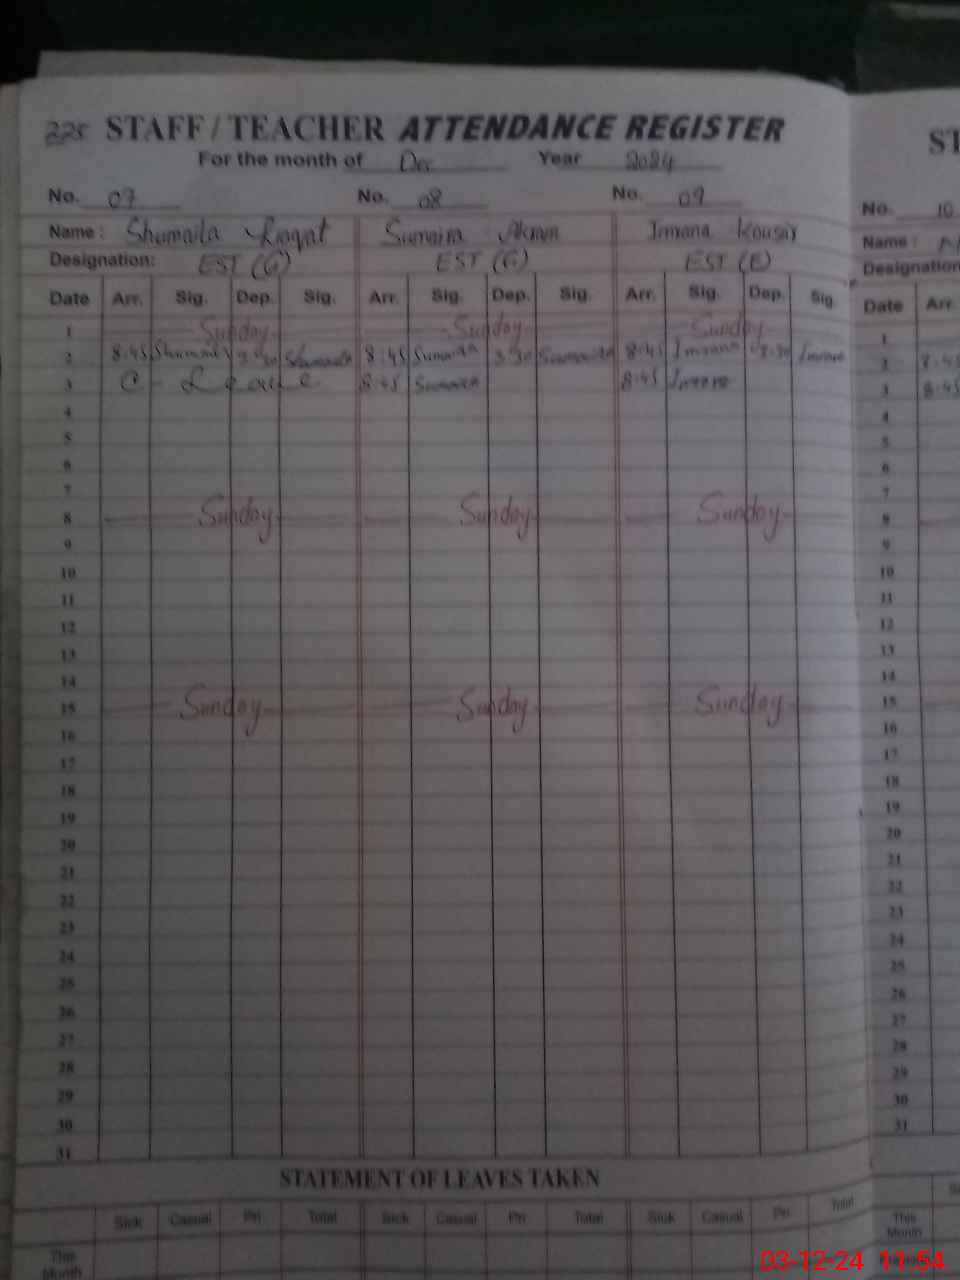 225 STAFF / TEACHER ATTENDANCE REGISTER
ST
For the month of Dec Year 2024
No. 07 No. 08 No. 09 No. 10
Name : Shumaila Liaqat Sumaira Akram Imrana Kousar Name :
Designation: EST (G) EST (G) EST (E) Designation
Date Arr. Sig. Dep. Sig. Arr. Sig. Dep. Sig. Arr. Sig. Dep. Sig. Date Arr.
1 Sunday Sunday Sunday 1
2 8:45 Shumaila 3:30 Shumaila 8:45 Sumaira 3:30 Sumaira 8:45 Imrana 03:30 Imrana 2 8:45
3 C- Leave 8:45 Sumaira 8:45 Imrana 3 8:45
4 4
5 5
6 6
7 7
8 Sunday Sunday Sunday 8
9 9
10 10
11 11
12 12
13 13
14 14
15 Sunday Sunday Sunday 15
16 16
17 17
18 18
19 19
20 20
21 21
22 22
23 23
24 24
25 25
26 26
27 27
28 28
29 29
30 30
31 31
STATEMENT OF LEAVES TAKEN
Sick Casual Pri Total Sick Casual Pri Total Sick Casual Pri Total This Month
This Month
03-12-24 11:54